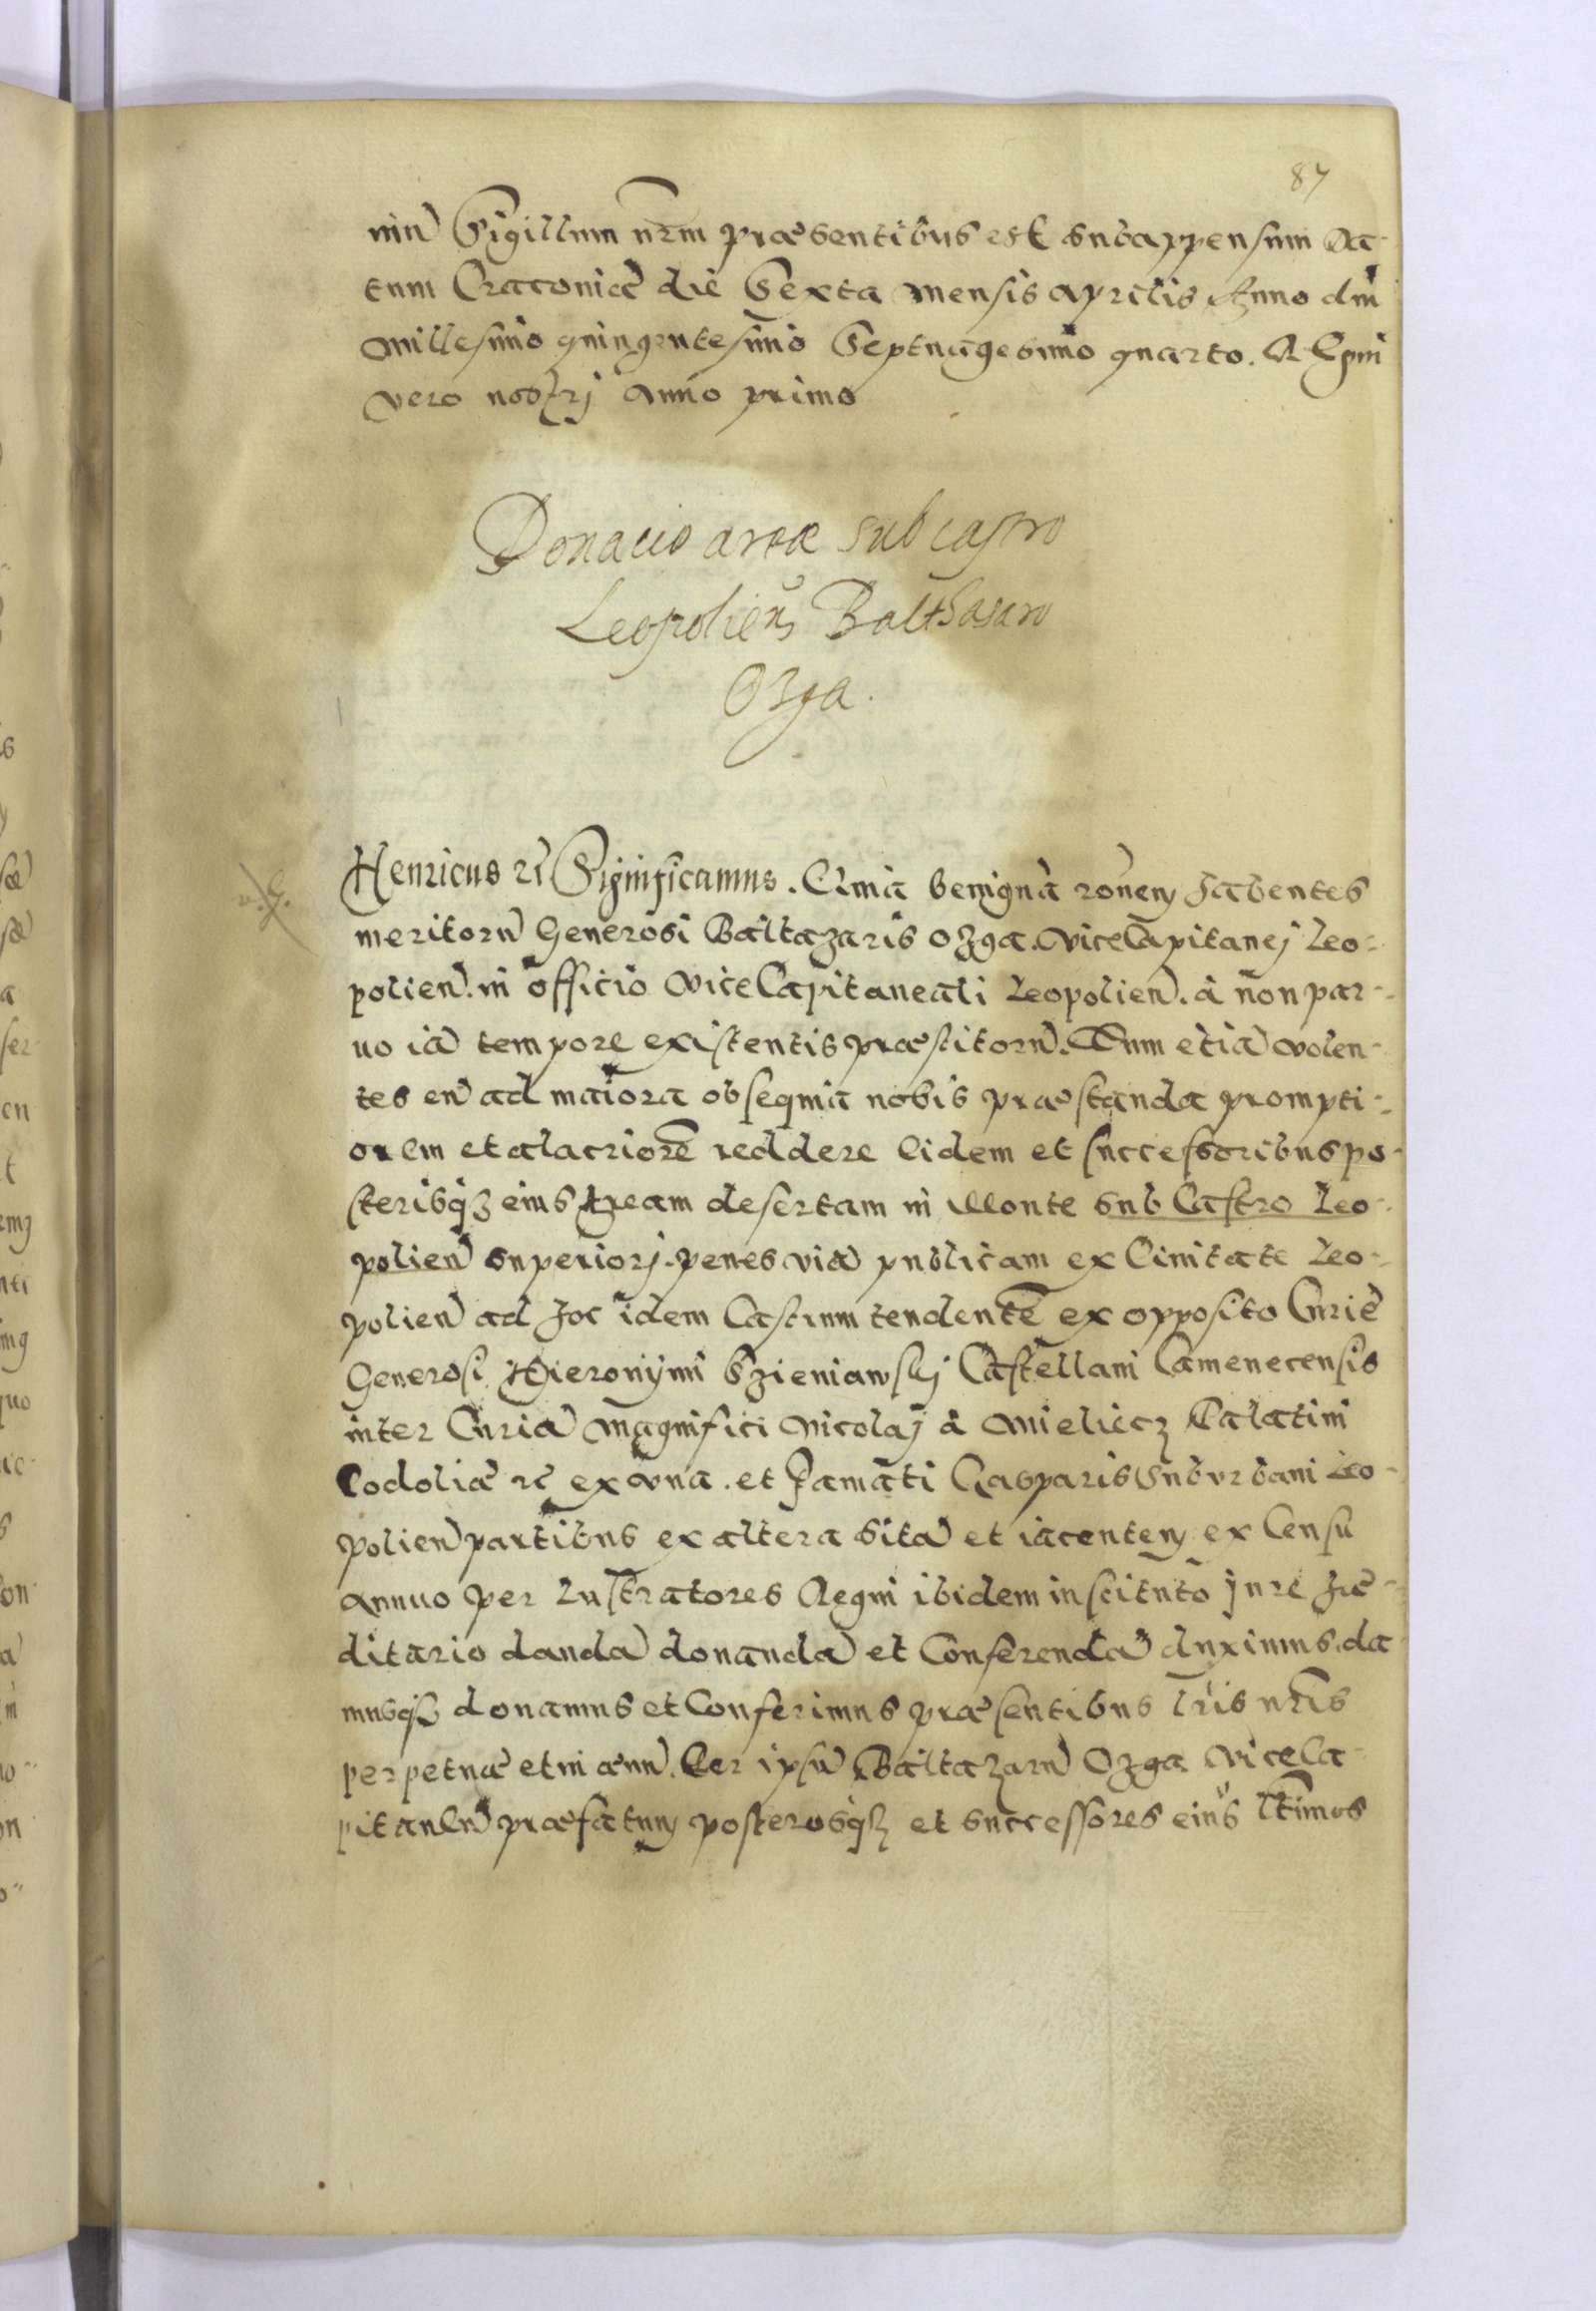 87
niu Sigillum nrm præsentibus est subappensum Da-
tum Cracouiæ die Sexta Mensis Aprilis Anno dni
Millesimo quingentesimo Septuagesimo quarto. Regni
vero nostrj Anno primo
Donacio areæ sub castro
Leopolien Balthasaro
Ozga.
Henricus rc Significamus. Quia benigna ronem habentes
meritoru Generosi Baltazaris Ozga. Vicecapitanej Leo-
polien. in officio ViceCapitaneali Leopolien. à non par-
uo ia tempore existentis præstitoru. Tum etia volen-
tes eu ad maiora obsequia nobis præstanda prompti-
orem et alacriore reddere Eidem et successoribus po-
sterisqz eius Aream desertam in Monte sub Castro Leo-
polien superiorj. penes via publicam ex Ciuitate Leo-
polien ad hoc idem Castrum tendente ex opposito Curiæ
Generosi Hieronymi Szieniawskj Castellani Camenecensis
inter Curia Magnifici Nicolaj à Mieliecz Palatini
Podoliæ rc ex vna. et Famati Casparis Suburbani Leo-
polien partibus ex altera sita et iacentem ex Censu
Annuo per Lustratores Regni ibidem instituto Jure hæ-
ditario danda donanda et Conferenda duximus. da
musqz donamus et Conferimus præsentibus lris nris
perpetuæ et in æuu. Per ipsu Baltazaru Ozga ViceCa-
pitaneu præfatum posterosqz et successores eius ltimos